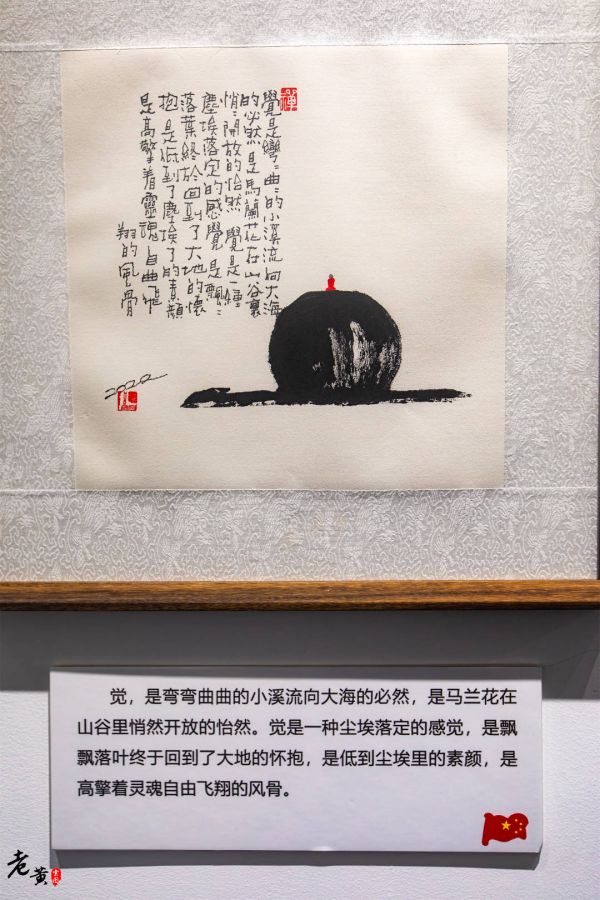 禪
覺是彎〻曲〻的小溪流向大海
的必然是馬蘭花在山谷裏
悄〻開放的怡然 覺是一種
塵埃落定的感覺是飄〻
落葉終於回到了大地的懷
抱是低到了塵埃了的素顔
是高擎着靈魂自由飛
翔的風骨
觉，是弯弯曲曲的小溪流向大海的必然，是马兰花在
山谷里悄然开放的怡然。觉是一种尘埃落定的感觉，是飘
飘落叶终于回到了大地的怀抱，是低到尘埃里的素颜，是
高擎着灵魂自由飞翔的风骨。
老黄